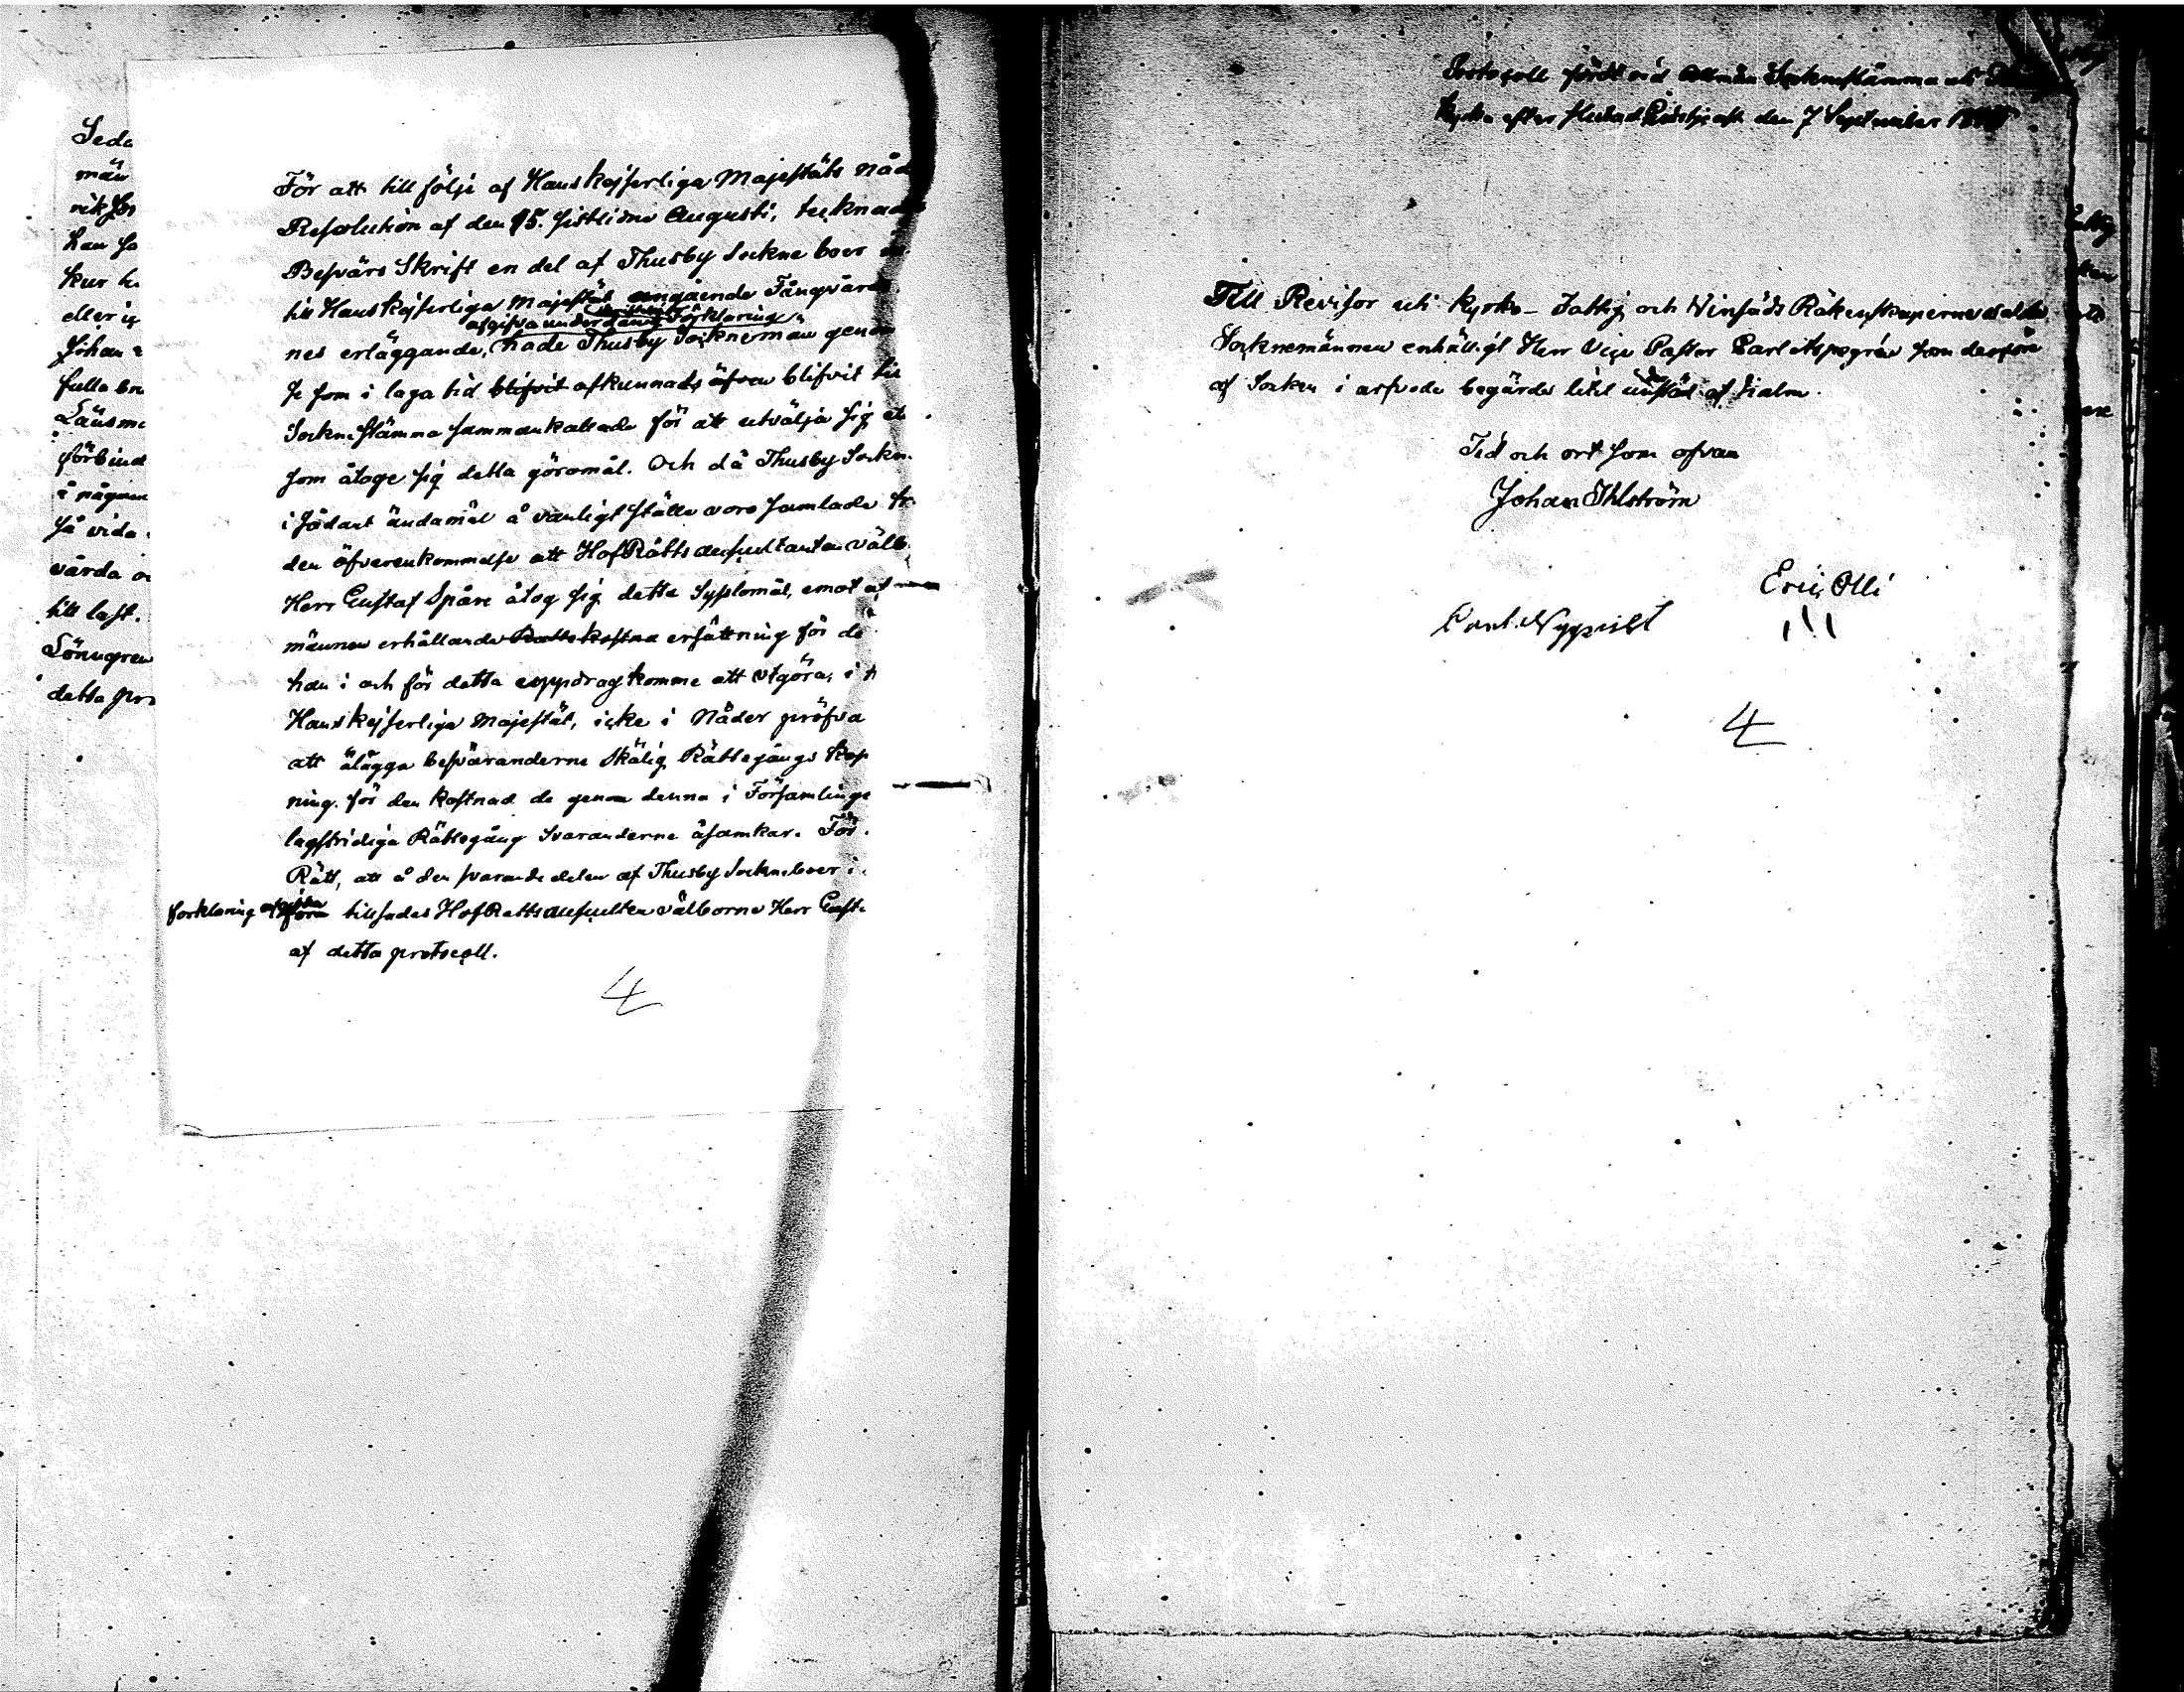 Seda
män
vik för
han så
kur h
eller ig
Johan
fulla
Länsm
förbind
i någon
så vida
vårda
till last.
Lönngren
detta pro
För att till följe af Hans kejserliga Majestäts Nåd
Resolution af den 15. sistlidne Augusti, tecknad
Besvärs Skrift en del af Thusby Sockne boer
till Hans kejserliga Majestät angående Fångvård
afgifva underdånig förklaring
nes erläggande, hade Thusby Socknemän genom
som i laga tid blifvit afkunnads äfven blifvit till
Sockne stämma sammankallade för att utvälja sig
som åtoge sig detta göromål. Och då Thusby Sockn
i sådant ändamål å vanligt ställe voro samlade
den öfverenkommelse att HofRätts auscultanten välb
Herr Gustaf Spåre åtog sig detta Sysslomål, emot at
männen erhållande Rätts kostna ersättning för de
han i och för detta uppdrag komme att utgöra, i
Hans kejserliga Majestät, icke i Nåder pröfva
att ålägga besväranderne Skälig Rättegångs
ning för den kostnad de genom denna i Församlings
lagstridiga Rättegång Svaranderne åsamkar. För
Rätt, att å den svarande delen af Thusby Sockneboer i
förklaring afgifva tillsades HofRätts auscultten välborne Herr Gust
af detta protocoll.
Protocoll fördt vid Allmän Sockenstämma uti
kyrka efter slutad Gudstjenst den 7 September
Till Revisor uti kyrko- Fattig och Räkenskaperne
Socknemännen enhälligt Herr Vice Pastor Carl som derföre
af Socken i arfvode begärde af
Tid och ort som ofvan
Johan Ihlström
Carl Nyqvist
Eric Olli